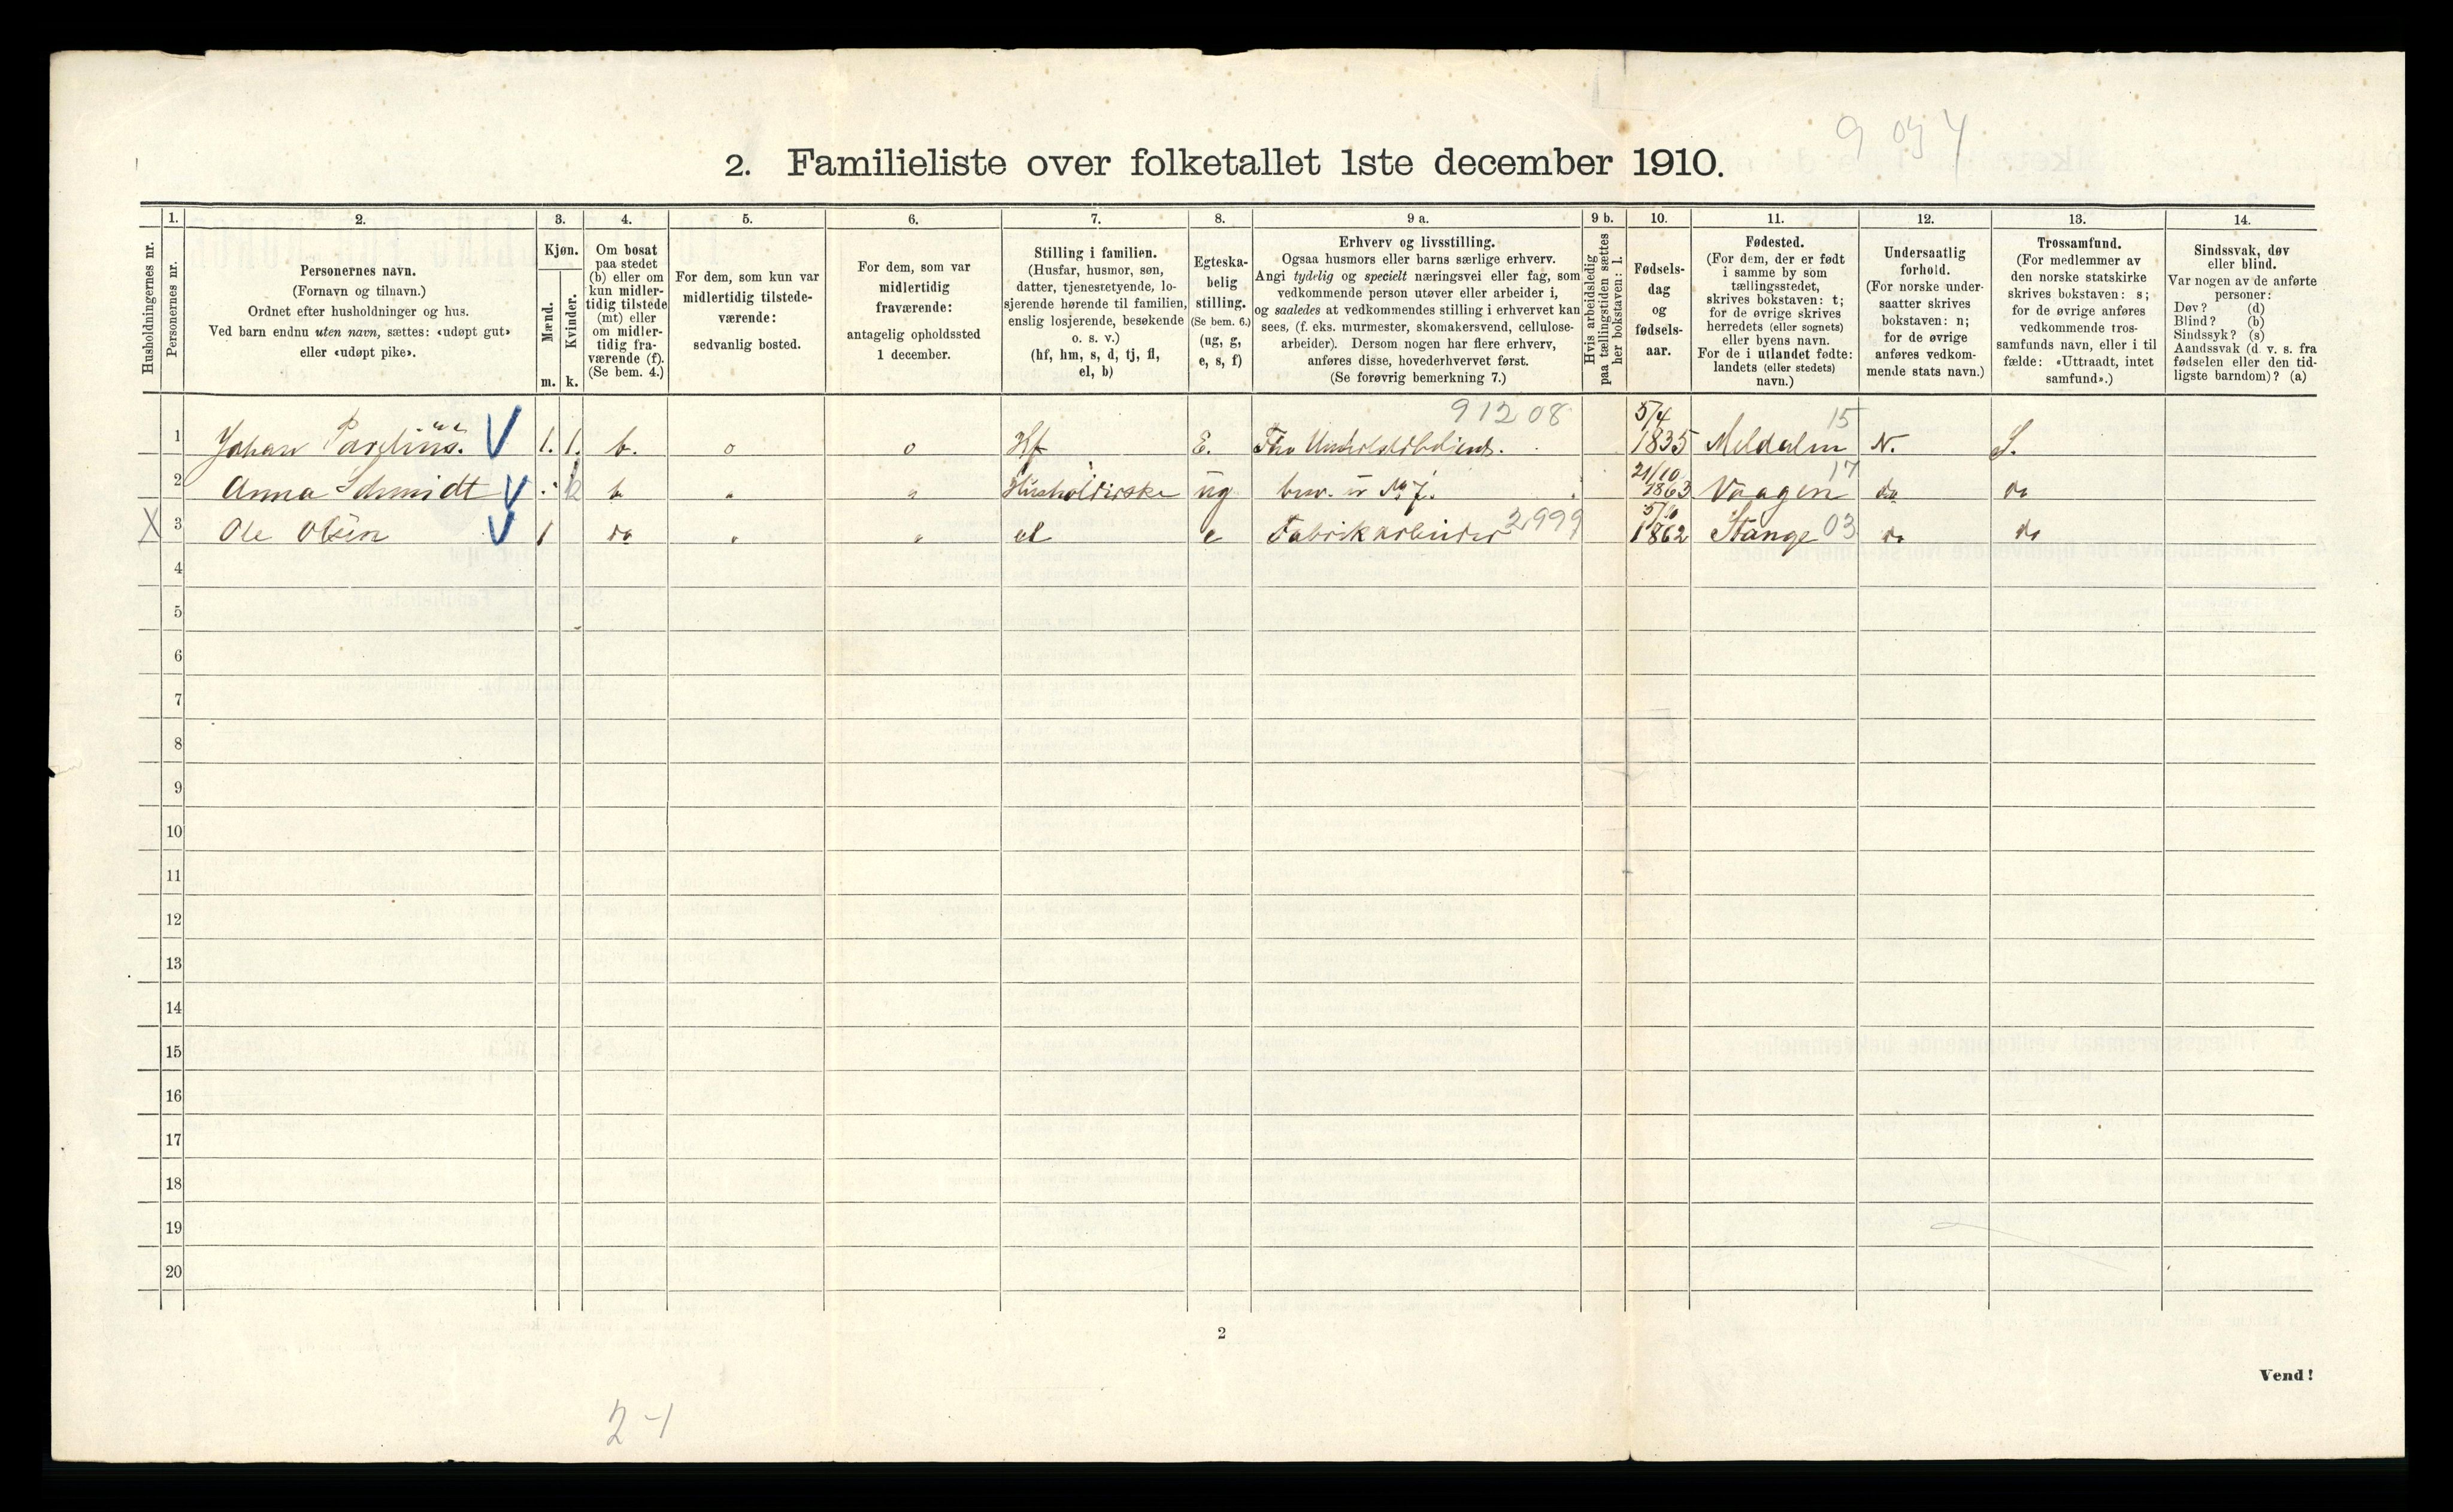 9 034
2. Familieliste over folketallet 1ste december 1910.
Husholdningernes nr.
1. Personernes nr.
2. Personernes navn.
(Fornavn og tilnavn.)
Ordnet efter husholdninger og hus.
Ved barn endnu uten navn, sættes: «udøpt gut»
eller «udøpt pike».
3. Kjøn.
Mænd. m.
Kvinder. k.
4. Om bosat
paa stedet
(b) eller om
kun midler-
tidig tilstede
(mt) eller
om midler-
tidig fra-
værende (f).
(Se bem. 4.)
5. For dem, som kun var
midlertidig tilstede-
værende:
sedvanlig bosted.
6. For dem, som var
midlertidig
fraværende:
antagelig opholdssted
1 december.
7. Stilling i familien.
(Husfar, husmor, søn,
datter, tjenestetyende, lo-
sjerende hørende til familien,
enslig losjerende, besøkende
o. s. v.)
(hf, hm, s, d, tj, fl,
el, b)
8. Egteska-
belig
stilling.
(Se bem. 6.)
(ug, g,
e, s, f)
9 a. Erhverv og livsstilling.
Ogsaa husmors eller barns særlige erhverv.
Angi tydelig og specielt næringsvei eller fag, som
vedkommende person utøver eller arbeider i,
og saaledes at vedkommendes stilling i erhvervet kan
sees, (f. eks. murmester, skomakersvend, cellulose-
arbeider). Dersom nogen har flere erhverv,
anføres disse, hovederhvervet først.
(Se forøvrig bemerkning 7.)
9 b. Hvis arbeidsledig
paa tællingstiden sættes
her bokstaven: l.
10. Fødsels-
dag
og
fødsels-
aar.
11. Fødested.
(For dem, der er født
i samme by som
tællingsstedet,
skrives bokstaven: t;
for de øvrige skrives
herredets (eller sognets)
eller byens navn.
For de i utlandet fødte:
landets (eller stedets)
navn.)
12. Undersaatlig
forhold.
(For norske under-
saatter skrives
bokstaven: n;
for de øvrige
anføres vedkom-
mende stats navn.)
13. Trossamfund.
(For medlemmer av
den norske statskirke
skrives bokstaven: s;
for de øvrige anføres
vedkommende tros-
samfunds navn, eller i til
fælde: «Uttraadt, intet
samfund».)
14. Sindssvak, døv
eller blind.
Var nogen av de anførte
personer:
Døv? (d)
Blind? (b)
Sindssyk? (s)
Aandssvak (d. v. s. fra
fødselen eller den tid-
ligste barndom)? (a)
91208 5/4 15
1 Johan V 1. 1. b. o o Hf E. 1835 Meldalen N. S.
21/10 17
2 Anna Schmidt V b " " Husholderske ug 1863 Vaagen do do
X 3 Ole Olsen V 1 do " " el e Fabrikarbeider 2999 1862 Stange 03 do do
4
5
6
7
8
9
10
11
12
13
14
15
16
17
18
19
20
2
Vend!
2-1